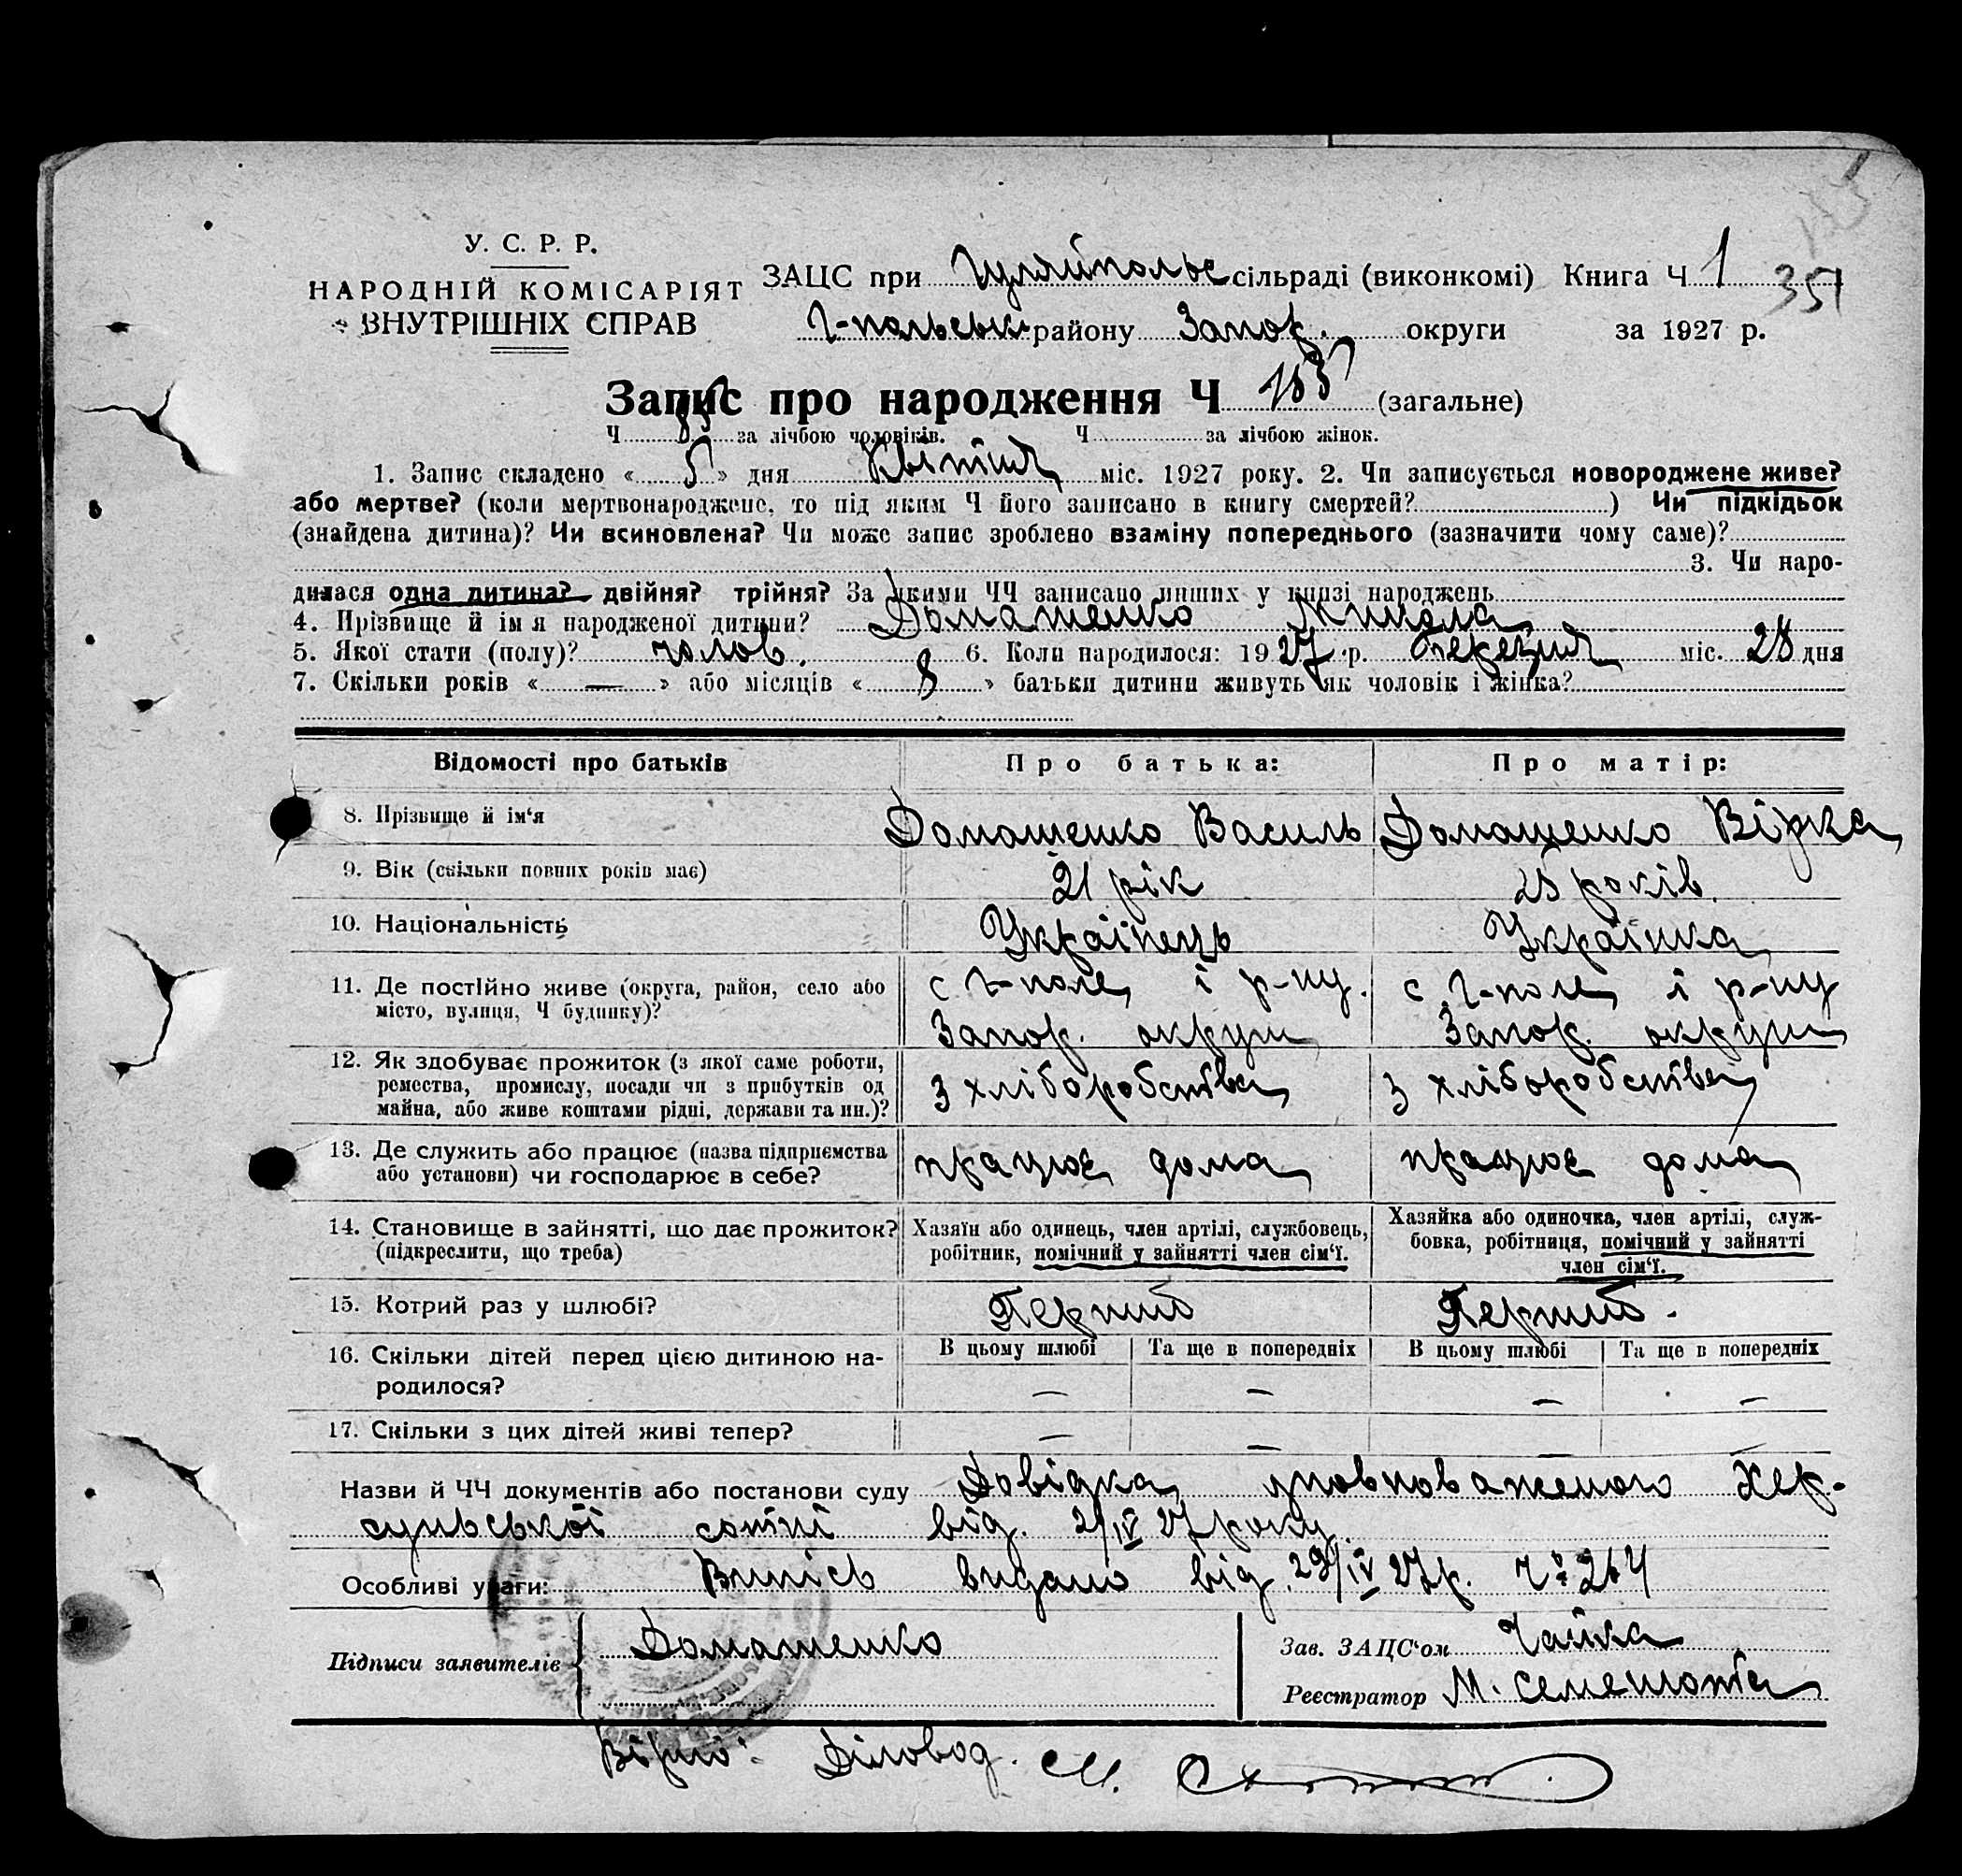 У. С. Р. Р.
НАРОДНІЙ КОМІСАРІЯТ
ВНУТРІШНІХ СПРАВ
ЗАЦС при Гуляйпольс сільраді (виконкомі) Книга Ч 1
351
Г-польськ району Запор. округи за 1927 р.
Запис про народження Ч 183 (загальне)
Ч за лічбою чоловіків. Ч за лічбою жінок.
1. Запис складено « 5 » дня Квітня міс. 1927 року. 2. Чи записується новороджене живе?
або мертве? (коли мертвонароджене, то під яким Ч його записано в книгу смертей? ) Чи підкідьок
(знайдена дитина)? Чи всиновлена? Чи може запис зроблено взаміну попереднього (зазначити чому саме)?
3. Чи наро-
дилася одна дитина? двійня? трійня? За якими ЧЧ записано инших у книзі народжень
4. Прізвище й ім я народженої дитини? Домашенко Микола
5. Якої стати (полу)? чолов. 6. Коли народилося: 1927 р. березня міс. 28 дня
7. Скільки років « — » або місяців « 8 » батьки дитини живуть як чоловік і жінка?
Відомості про батьків Про батька: Про матір:
8. Прізвище й ім'я Домашенко Василь Домашенко Вірка
9. Вік (скільки повних років має) 21 рік років
10. Національність Українець Українка
11. Де постійно живе (округа, район, село або місто, вулиця, Ч будинку)? с Г-поле і р-ну. с. Г-поле і р-ну
Запор. округи Запор. округи
12. Як здобуває прожиток (з якої саме роботи,
ремества, промислу, посади чи з прибутків од
майна, або живе коштами рідні, держави та ин.)? З хліборобства З хліборобства
13. Де служить або працює (назва підприємства
або установи) чи господарює в себе? працює дома працює дома
14. Становище в зайнятті, що дає прожиток?
(підкреслити, що треба)
Хазяїн або одинець, член артілі, службовець,
робітник, помічний у зайнятті член сім'ї.
Хазяйка або одиночка, член артілі, служ-
бовка, робітниця, помічний у зайнятті
член сім'ї.
15. Котрий раз у шлюбі? Перший Перший.
16. Скільки дітей перед цією дитиною на-
родилося?
В цьому шлюбі Та ще в попередніх В цьому шлюбі Та ще в попередніх
— — — —
17. Скільки з цих дітей живі тепер? — — — —
Назви й ЧЧ документів або постанови суду Довідка уповноваженого Хер-
сунської сотні від. 2/IV 27 року.
Особливі уваги: Випісь видано від. 29/IV 27р. Ч 264
Підписи заявителів Домашенко
Зав. ЗАЦС'ом Чайка
Реєстратор М. Семенюта
Вірно: Діловод. М.